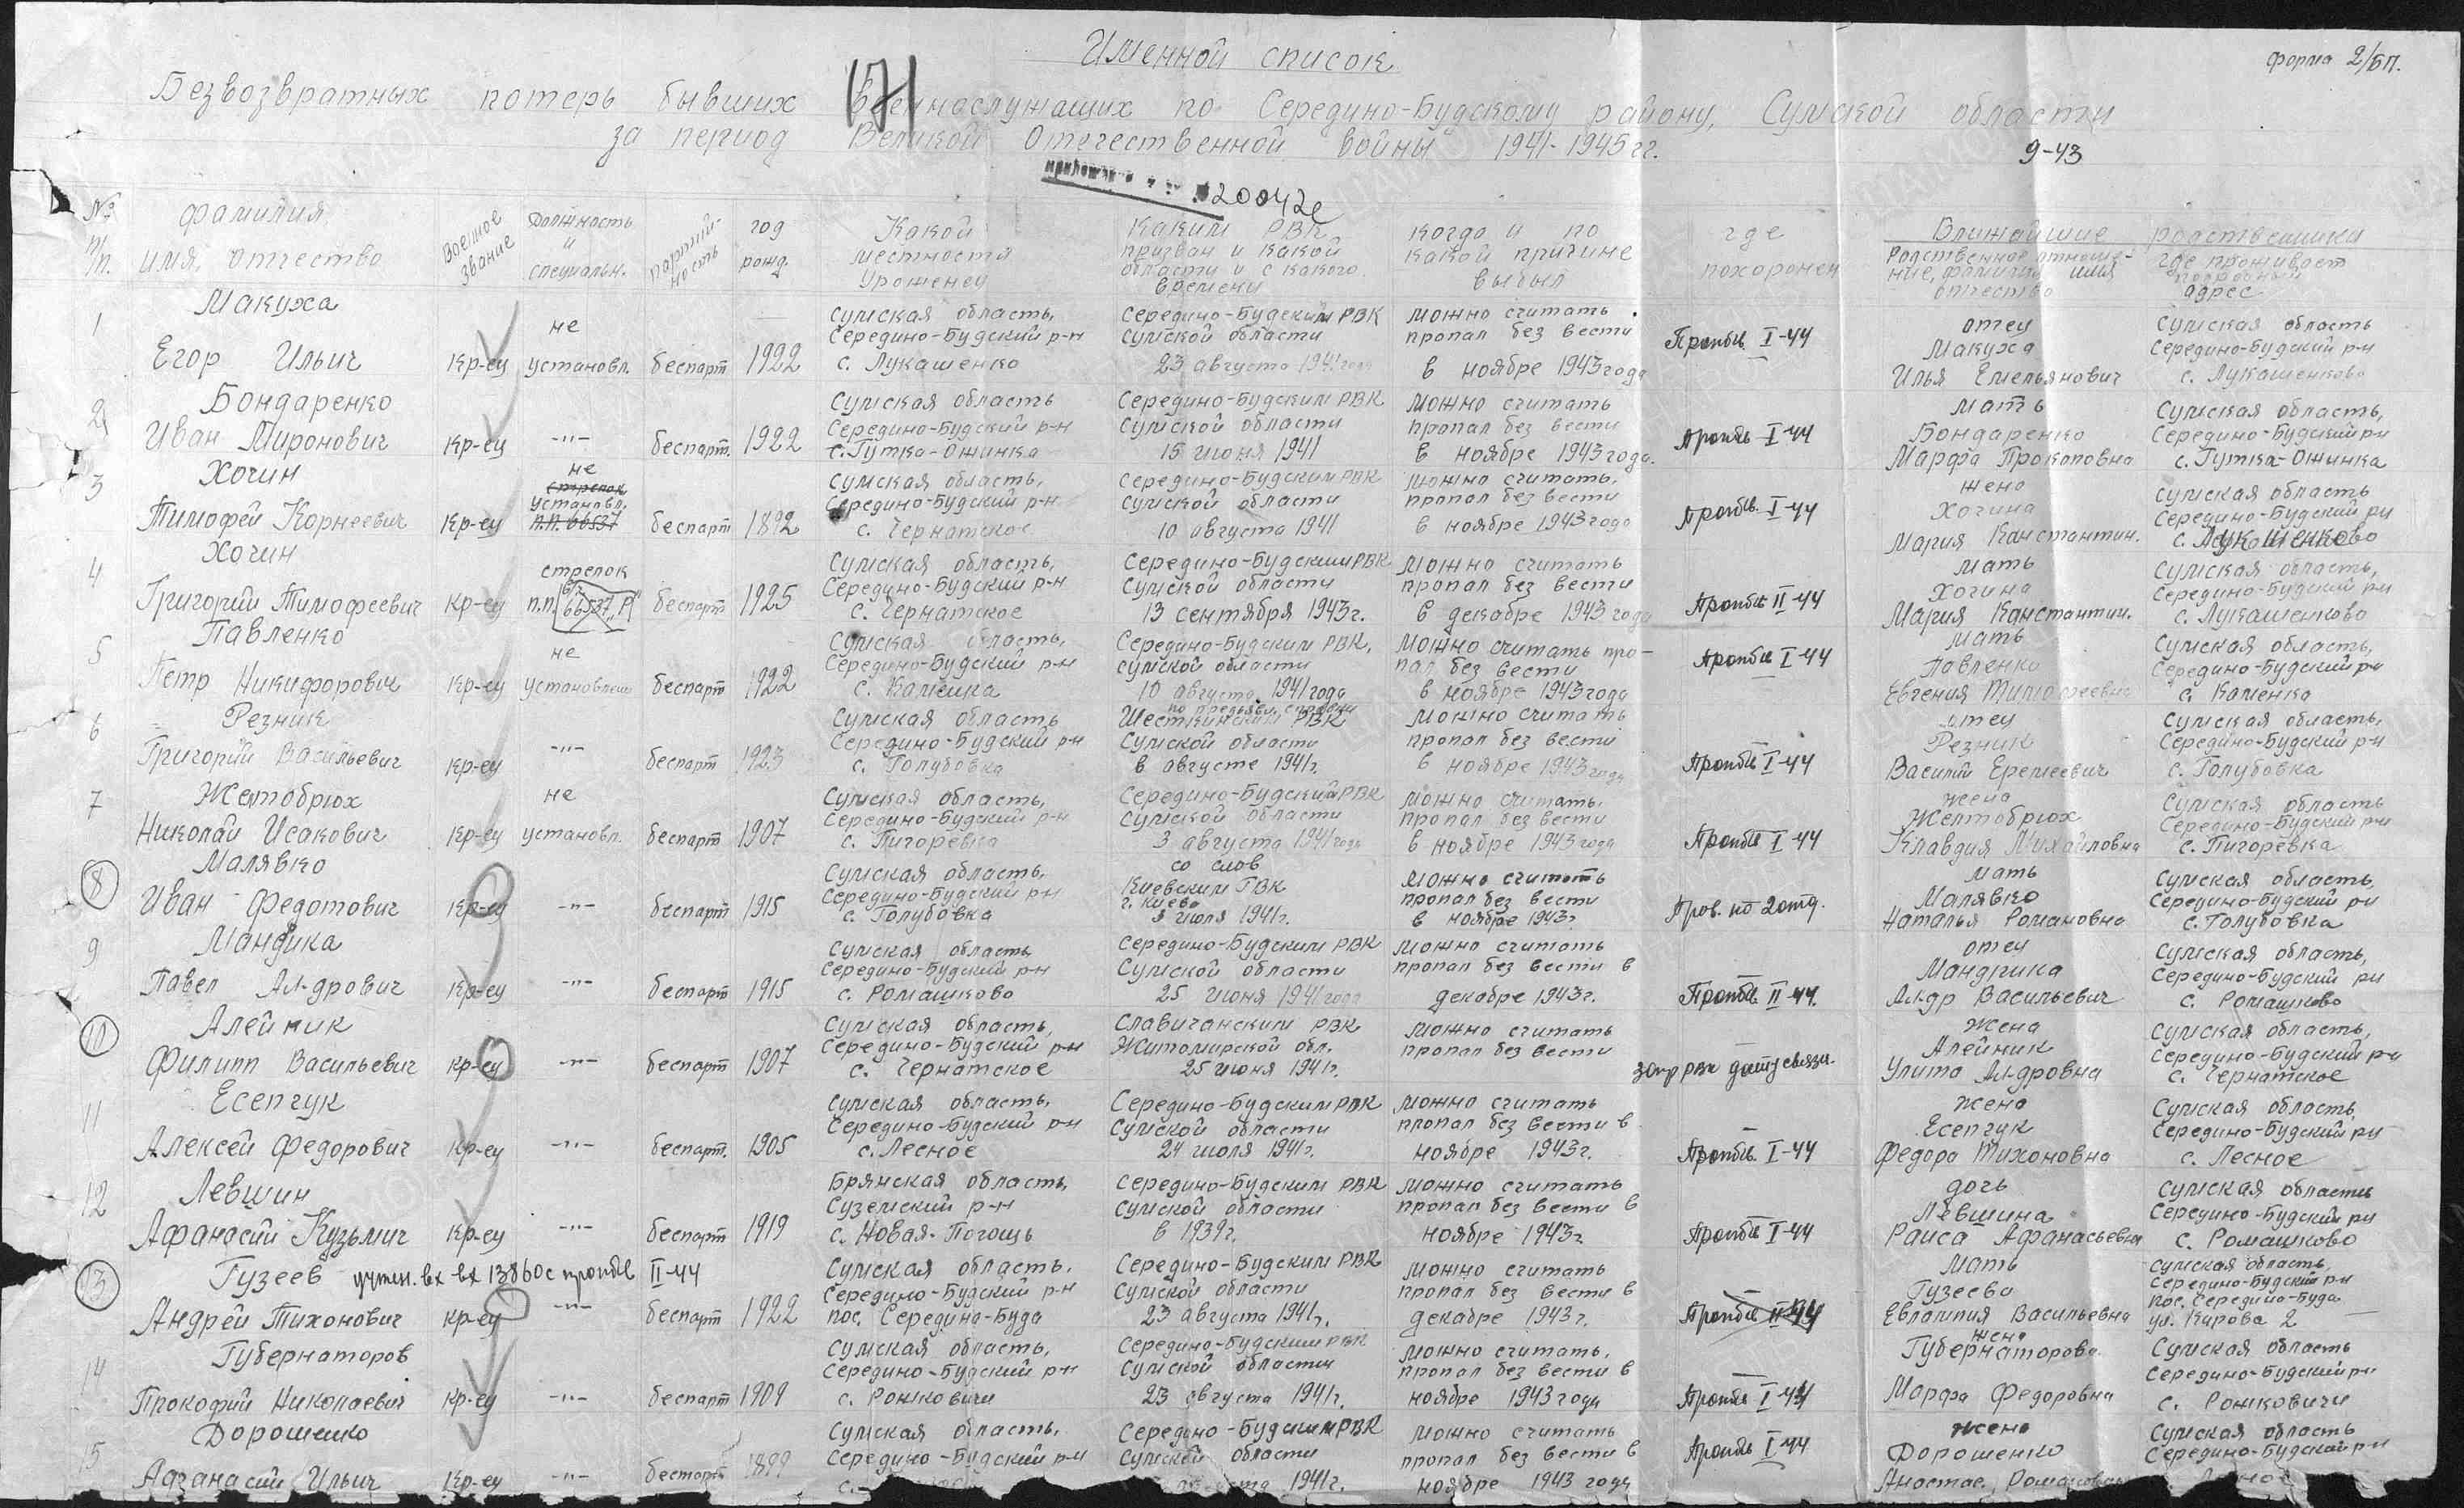 Именной список
форма 2/БП.
Безвозвратных потерь бывших военнослужащих по Середино-Будскому району, Сумской области
за период Великой Отечественной войны 1941-1945 гг.
171
9-43
20042с
№ п/п.
фамилия, имя, отчество
Военное звание
Должность и специальн.
партийность
год рожд.
Какой местности урожен
Каким РВК призван и какой области и с какого времени
когда и по какой причине выбыл
где похоронен
Ближайшие родственники
Родственное отноше-ние, фамилия имя отчество
где проживает подробный адрес
1
Макуха
Егор Ильич
Кр-ец
не установл.
беспарт
1922
Сумская область,
Середино-Будский р-н
с. Лукашенко
Середино-Будским РВК
Сумской области
23 августа 1941 года
можно считать
пропал без вести
в ноябре 1943 года
Пропбв. I-44
отец
Макуха
Илья Емельянович
Сумская область
Середино-Будский р-н
с. Лукашенково
2
Бондаренко
Иван Миронович
Кр-ец
-"-
беспарт.
1922
Сумская область
Середино-Будский р-н
с. Гутка-Ожинка
Середино-Будским РВК
Сумской области
15 июня 1941
можно считать
пропал без вести
в ноябре 1943 года.
Пропбв I-44
мать
Бондаренко
Марфа Прокоповна
Сумская область,
Середино-Будский р-н
с. Гутка-Ожинка
3
Хочин
Тимофей Корнеевич
Кр-ец
не
стрелок
установл.
п.п. 66537
беспарт
1892
Сумская область,
Середино-Будский р-н
с. Чернатское
Середино-Будским РВК
Сумской области
10 августа 1941
можно считать,
пропал без вести
в ноябре 1943 года
Пропбв. I-44
жена
Хочина
Мария Канстантин.
Сумская область
Середино-Будский р-н
с. Лукашенково
4
Хочин
Григорий Тимофеевич
Кр-ец
стрелок
п.п. 66537 "Р"
беспарт
1925
Сумская область,
Середино-Будский р-н
с. Чернатское
Середино-Будским РВК
Сумской области
13 сентября 1943г.
можно считать
пропал без вести
в декабре 1943 года
Пропбв II-44
мать
Хочина
Мария Канстантин.
Сумская область,
Середино-Будский р-н
с. Лукашенково
5
Павленко
Петр Никифорович
Кр-ец
не установлен
беспарт
1922
Сумская область,
Середино-Будский р-н
с. Каменка
Середино-Будским РВК,
Сумской области
10 августа 1941 года
Можно считать про-
пал без вести
в ноябре 1943 года
Пропбв I-44
мать
Павленко
Евгения Тимофеевна
Сумская область,
Середино-Будский р-н
с. Каменка
6
Резник
Григорий Васильевич
Кр-ец
-"-
беспарт
1923
Сумская область
Середино-Будский р-н
с. Голубовка
РВК
Сумской области
в августе 1941г.
можно считать
пропал без вести
в ноябре 1943 года
Пропбв I-44
отец
Резник
Василий Еремеевич
Сумская область,
Середино-Будский р-н
с. Голубовка
7
Желтобрюх
Николай Исакович
Кр-ец
не установл.
беспарт
1907
Сумская область,
Середино-Будский р-н
с. Пигоревка
Середино-Будский РВК
Сумской области
3 августа 1941 года
можно считать.
пропал без вести
в ноябре 1943 года
Пропбв I-44
жена
Желтобрюх
Клавдия Михайловна
Сумская область
Середино-Будский р-н
с. Пигоревка
8
Малявко
Иван Федотович
Кр-ец
-"-
беспарт
1915
Сумская область,
Середино-Будский р-н
с. Голубовка
со слов
Киевским ГВК
г. Киева
июля 1941г.
можно считать
пропал без вести
в ноябре 1943г.
Пров. по 2отд.
мать
Малявко
Наталья Романовна
Сумская область,
Середино-Будский р-н
с. Голубовка
9
Мандрика
Павел Ал-дрович
Кр-ец
-"-
беспарт
1915
Сумская область
Середино-Будский р-н
с. Ромашково
Середино-Будским РВК
Сумской области
25 июня 1941 года
можно считать
пропал без вести в
декабре 1943г.
Пропбв. II-44.
отец
Мандрика
Ал-др Васильевич
Сумская область,
Середино-Будский р-н
с. Ромашково
10
Алейник
Филипп Васильевич
Кр-ец
-"-
беспарт
1907
Сумская область,
Середино-Будский р-н
с. Чернатское
Славичанским РВК
Житомирской обл.
25 июня 1941г.
можно считать
пропал без вести
запр РВК дату связи.
жена
Алейник
Улита Ал-дровна
Сумская область,
Середино-Будский р-н
с. Чернатское
11
Есепчук
Алексей Федорович
Кр-ец
-"-
беспарт.
1905
Сумская область,
Середино-Будский р-н
с. Лесное
Середино-Будским РВК
Сумской области
24 июля 1941г.
можно считать
пропал без вести в
ноябре 1943г.
Пропбв. I-44
жена
Есепчук
Федора Тихоновна
Сумская область
Середино-Будский р-н
с. Лесное
12
Левшин
Афанасий Кузьмич
Кр-ец
-"-
беспарт
1919
Брянская область,
Суземский р-н
с. Новая-Погощь
Середино-Будским РВК
Сумской области
в 1939г.
можно считать
пропал без вести в
ноябре 1943г.
Пропбв I-44
дочь
Левшина
Раиса Афанасьевна
Сумская область
Середино-Будский р-н
с. Ромашково
13
Гузеев учтен. вх-вх 13860с пропбв II-44
Андрей Тихонович
Кр-ец
-"-
беспарт
1922
Сумская область,
Середино-Будский р-н
пос. Середина-Буда
Середино-Будским РВК
Сумской области
23 августа 1941г.
можно считать
пропал без вести в
декабре 1943г.
Пропбв II-44
мать
Гузеева
Евлампия Васильевна
Сумская область,
Середино-Будский р-н
пос. Середино-Буда
ул. Кирова 2
14
Губернаторов
Прокофий Николаевич
Кр-ец
-"-
беспарт
1909
Сумская область,
Середино-Будский р-н
с. Рожковичи
Середино-Будским РВК
Сумской области
23 августа 1941г.
можно считать,
пропал без вести в
ноябре 1943 года
Пропбв I-44
жена
Губернаторова
Марфа Федоровна
Сумская область
Середино-Будский р-н
с. Рожковичи
15
Дорошенко
Афанасий Ильич
Кр-ец
-"-
беспарт
1899
Сумская область,
Середино-Будский р-н
с.
Середино-Будским РВК
Сумской области
1941г.
можно считать
пропал без вести в
ноябре 1943 года
Пропбв I-44
жена
Дорошенко
Анастас. Романовна
Сумская область
Середино-Будский р-н